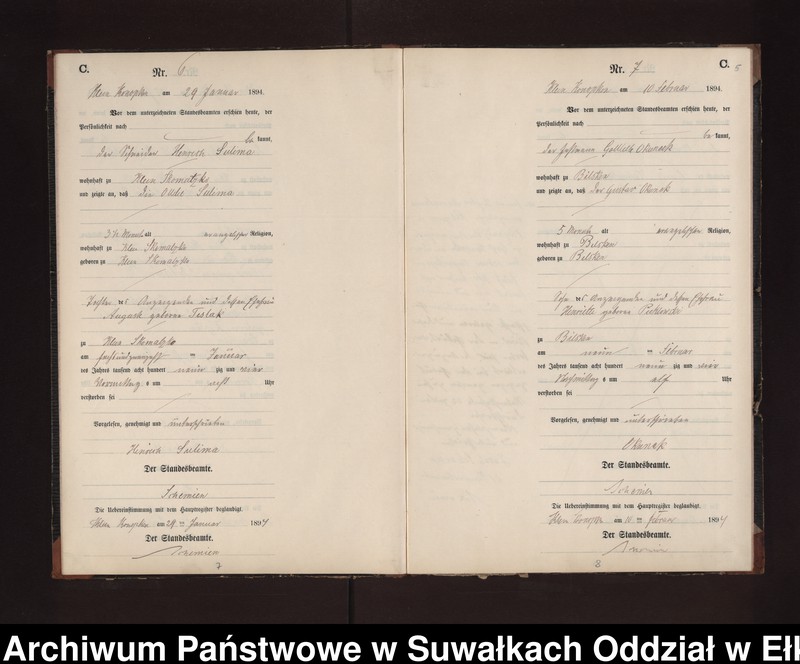 C.
Nr. 6
Klein Konopken am 29 Januar 1894.
Vor dem unterzeichneten Standesbeamten erschien heute, der
Persönlichkeit nach
be kannt,
der Schneider Heinrich Sulima
wohnhaft zu Klein Skomatzko
und zeigte an, daß die Ottilie Sulima
alt evangelischer Religion,
wohnhaft zu Klein Skomatzko
geboren zu Klein Skomatzko
Tochter des Anzeigenden und dessen Ehefrau
geborene
zu Klein Skomatzko
am sechsundzwanzigsten Januar
des Jahres tausend acht hundert neun zig und vier
Vormittags um acht Uhr
verstorben sei
Vorgelesen, genehmigt und unterschrieben
Heinrich Sulima
Der Standesbeamte.
Schemien
Die Uebereinstimmung mit dem Hauptregister beglaubigt.
Klein Konopken am 29 ten Januar 1894
Der Standesbeamte.
Schemien
7
C.
5
Nr. 7
Klein Konopken am 10 Februar 1894.
Vor dem unterzeichneten Standesbeamten erschien heute, der
Persönlichkeit nach
be kannt,
der Gottlieb
wohnhaft zu Bilsken
und zeigte an, daß der Gustav
5 Monat alt evangelischer Religion,
wohnhaft zu Bilsken
geboren zu Bilsken
Sohn des Anzeigenden und dessen Ehefrau
geborene
zu Bilsken
am neun ten Februar
des Jahres tausend acht hundert neun zig und vier
Vormittags um elf Uhr
verstorben sei
Vorgelesen, genehmigt und unterschrieben
Der Standesbeamte.
Schemien
Die Uebereinstimmung mit dem Hauptregister beglaubigt.
Klein Konopken am 10 ten Februar 1894
Der Standesbeamte.
Schemien
8
Archiwum Państwowe w Suwałkach Oddział w Ełk